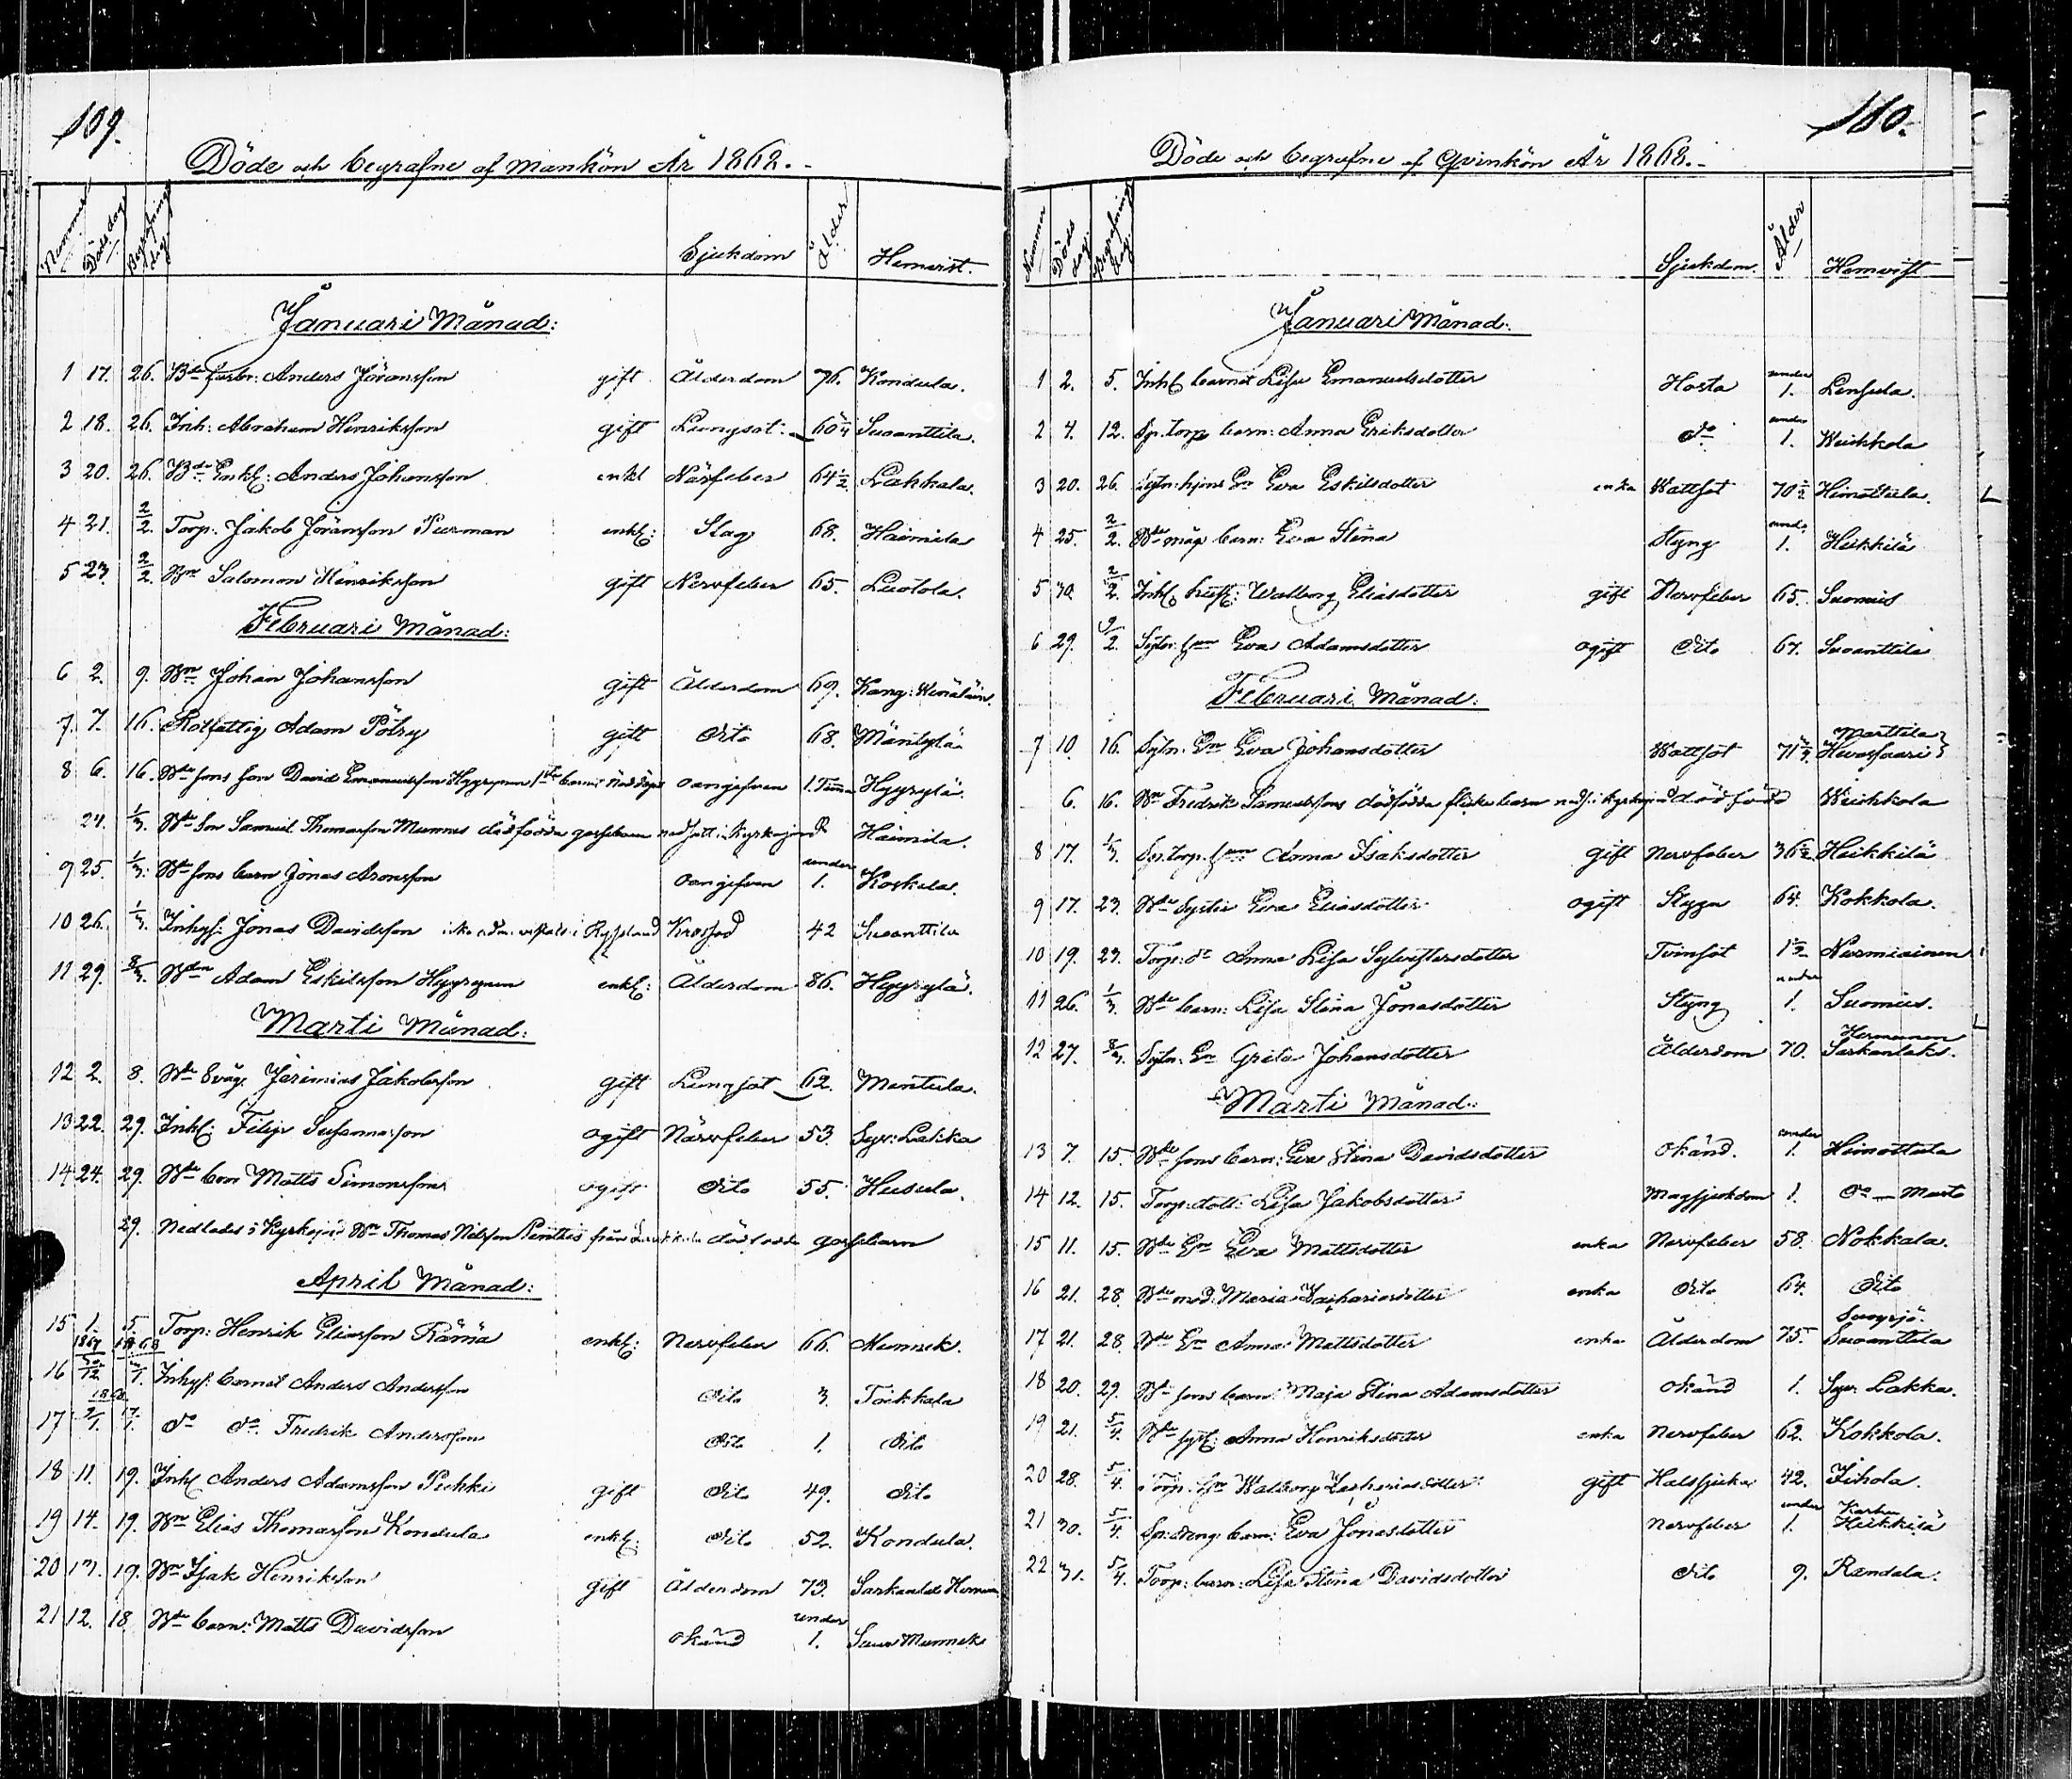 109.
Döde och begrafne af Mankön År 1868.
Nummer Dödsdag Begrafnings dag Sjukdom Ålder Hemvist.
Januari Månad:
1 17. 26. Anders Jöransson gift Ålderdom 76. Kondula.
2 18. 26. Inh: Abraham Henriksson gift Lungsot. Suoanttila.
3 20. 26. Anders Johansson enkl Närfeber 64½ Lakkala.
4 21. 2/2. Torp: Jakob Jöransson Purman enkl: Slag 68. Haimila
5 23. 2/2. Bn Salomon Henriksson gift Nervfeber 65. Luotola.
Februari Månad:
6 2. 9. Bn Johan Johansson gift Ålderdom 69. Kang:
7. 7. 16. Rotfattig Adam Pölry gift Dito 68. Mäntylä
8 6. 16. Bde sons son David Emanuelsson Hyyrynen oangifven 1. Timma Hyyrylä.
24. 1/3. Bde son Samuel Thomasson Munnus dödfödda gossebarn nedsatt i Kyrkojord Haimila.
9 25. 1/3. Bde sons barn Jonas Aronsson oangifven under 1. Koskela.
10 26. 1/3. Inhys: Jonas Davidsson i Ryssland 42 Suoanttila
11 29. 8/3. Adam Eskilsson Hyyrynen enkl: Ålderdom 86. Hyyrylä.
Marti Månad:
12 2. 8. Bde Svåg. Jerimias Jakobsson gift Lungsot 62. Mentula.
13 22. 29. Inh: Filip Susannasson ogift Närvfeber 53. Syr: Lakka
14 24. 29. Bde bror Matts Simonsson ogift Dito 55. Husula.
29. Nedlades i Kyrkojord Bn Thomas Nilsson Penttis från dödfödda gossebarn
April Månad:
15 1. 5. Torp: Henrik Eliasson Rämä enkl: Nervfeber 66. Munnik.
1867 1868
16 Inhys: barnet Anders Andersson Dito 3. Toikkala
1868
17 do do Fredrik Andersson Dito 1. Dito
18 11. 19. Inh: Anders Adamsson Puhki gift Dito 49. Dito
19 14. 19. Bn Elias Thomasson Kondula enkl: Dito 52. Kondula.
20 13. 19. Bn Isak Henriksson gift Ålderdom 73. Sarkalaks
21 12. 18. Bde barn: Matts Davidsson okänd under 1. Suur Munnik
110.
Döde och begrafne af Qvinkön År 1868.
Nummer Döds dag: Begrafnings dag: Sjukdom. Ålder Hemvist
Januari Månad:
1 2. 5. Inh: barnet Lisa Emanuelsdotter Hosta under 1. Lensula.
2 4. 12. Sp: torp barn: Anna Eriksdotter do under 1. Kuikkola
3 20. 26. Eva Eskilsdotter enka Wattsot 70½ Himottula.
4 25. 2/2. Bde måg barn: Eva Stina Styng under 1. Heikkilä
5 30. 2/2. Inh: hust: Walborg Eliasdotter gift Nervfeber 65. Suomis
6 29. 9/2. Eva Adamsdotter ogift Dito 67. Suoanttila
Februari Månad:
7 10. 16. Eva Johansdotter Wattsot Marttila
6. 16. Bn Fredrik Samuelssons dödfödda flickebarn dödfödd Kuikkola
8 17. 1/3. Anna Isaksdotter gift Nervfeber 36½ Heikkilä
9 17. 23. Bde Syster Eva Eliasdotter ogift Stygn 64. Kokkola.
10 19. 23. Torp: dr Anna Lisa Sylvestersdotter Tvinsot 1½ Nurmiainen
11 26. 1/3. Bde barn: Lisa Stina Jonasdotter Styng under 1. Suomis.
12 27. 8/3. Greta Johansdotter Ålderdom 70. Hermunen Sarkalaks.
Marti Månad:
13 7. 15. Bde sons barn: Eva Stina Davidsdotter okänd. under 1. Himottula
14 12. 15. Torp: dott: Lisa Jakobsdotter Magsjukdom 1. do — Marto
15 11. 15. Bde En Eva Mattsdotter enka Nervfeber 58. Nokkala.
16 21. 28. Bde mod: Maria Zachariasdotter enka Dito 64. Dito
17 21. 28. Bde En Anna Mattsdotter enka Ålderdom 75. Suoanttila
18 20. 29. Bde sons barn: Maja Stina Adamsdotter okänd 1. Syr: Lakka.
19 21. 5/4. Anna Henriksdotter enka Nervfeber 62. Kokkola.
20 28. 5/4. Torp: hn Walborg Zachariasdotter gift Halssjuka 42. Jihola.
21 30. 5/4. Sp: dreng barn: Eva Jonasdotter Nervfeber under 1. Heikkilä
22 31. 5/4. Torp: barn: Lisa Stina Davidsdotter Dito 9. Randala.